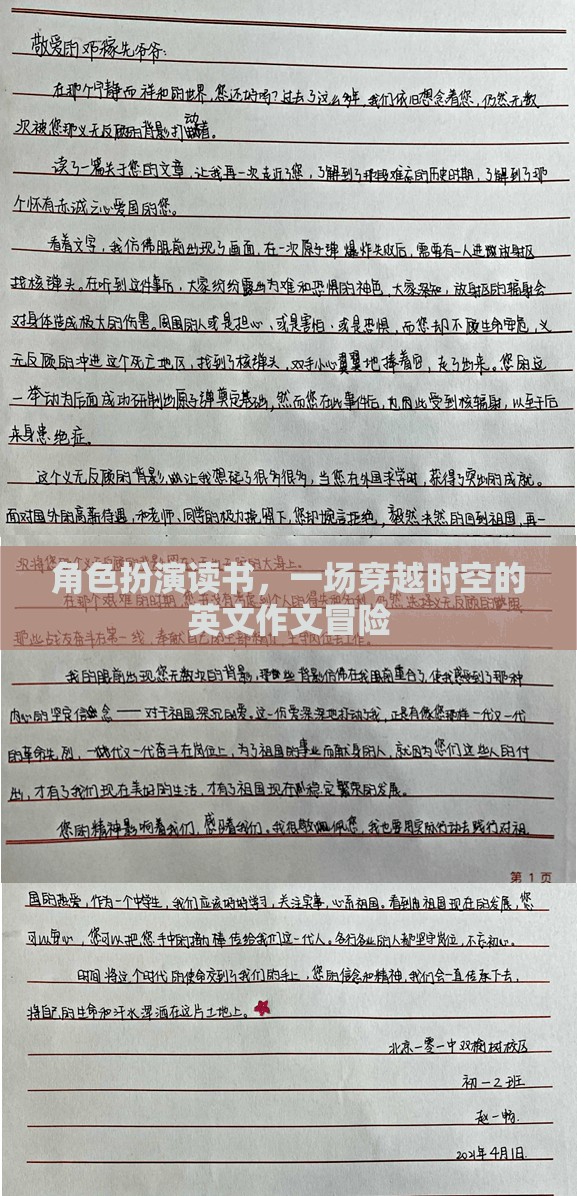 敬爱的邓稼先爷爷:
在那个宁静而祥和的世界,您还好吗?过去了这么多年,我们依旧想念着您,仍然无数
次被您那义无反顾的背影打动着。
读了一篇关于您的文章,让我再一次走近了您,了解到了那段难忘的历史时期,了解到了那
个怀有赤诚之心爱国的您。
看着文字,我仿佛眼前出现了画面,在一次原子弹爆炸失败后,需要有一人进放射区
找核弹头。在听到这件事后,大家纷纷露出为难和恐惧的神色,大家深知,放射区的辐射会
对身体造成极大的伤害。周围的人或是担心,或是害怕,或是恐惧,而您却不顾生命安危,义
无反顾的冲进这个死亡地区,找到了核弹头,双手小心翼翼地捧着它,走了出来。您的这
一举动为后面成功研制出原子弹奠定基础,然而您在此事件后,也因此受到核辐射,以至于后
来身患绝症。
这个义无反顾的背影,让我想起了很多很多,当您在外国求学时,获得了突出的成就。
面对国外的高薪待遇,和老师、同学的极力挽留下,您却婉言拒绝,毅然决然的回到祖国,再一
角色扮演读书,一场穿越时空的
英文作文冒险
那些战友奋斗在第一线,奉献自己的
我的眼前出现您无数次的背影,那些背影仿佛在我眼前重合了,使我感受到了那种
内心的坚定信念——对于祖国深沉的爱。这一份爱深深地打动了我,正是有像您那样一代又一代
的革命先烈,一代又一代奋斗在岗位上,为了祖国的事业而献身的人,就因为您们这些人的付
出,才有了我们现在美好的生活,才有了祖国现在稳定繁荣的发展。
您的精神影响着我们,感召着我们。我很敬佩您,我也要用实际行动去践行对祖
第 1 页
国的热爱,作为一个中学生,我们应该好好学习,关注实事,心系祖国。看到祖国现在的发展,您
可以安心,您可以把您手中的接力棒传给我们这一代人。各行各业的人都坚守岗位,不忘初心。
时间将这个时代的使命交到了我们的手上,您的信念和精神,我们会一直传承下去,
将自己的生命和汗水挥洒在这片土地上。
北京一零一中双榆树校区
初一2班
赵一畅
2021年4月1日